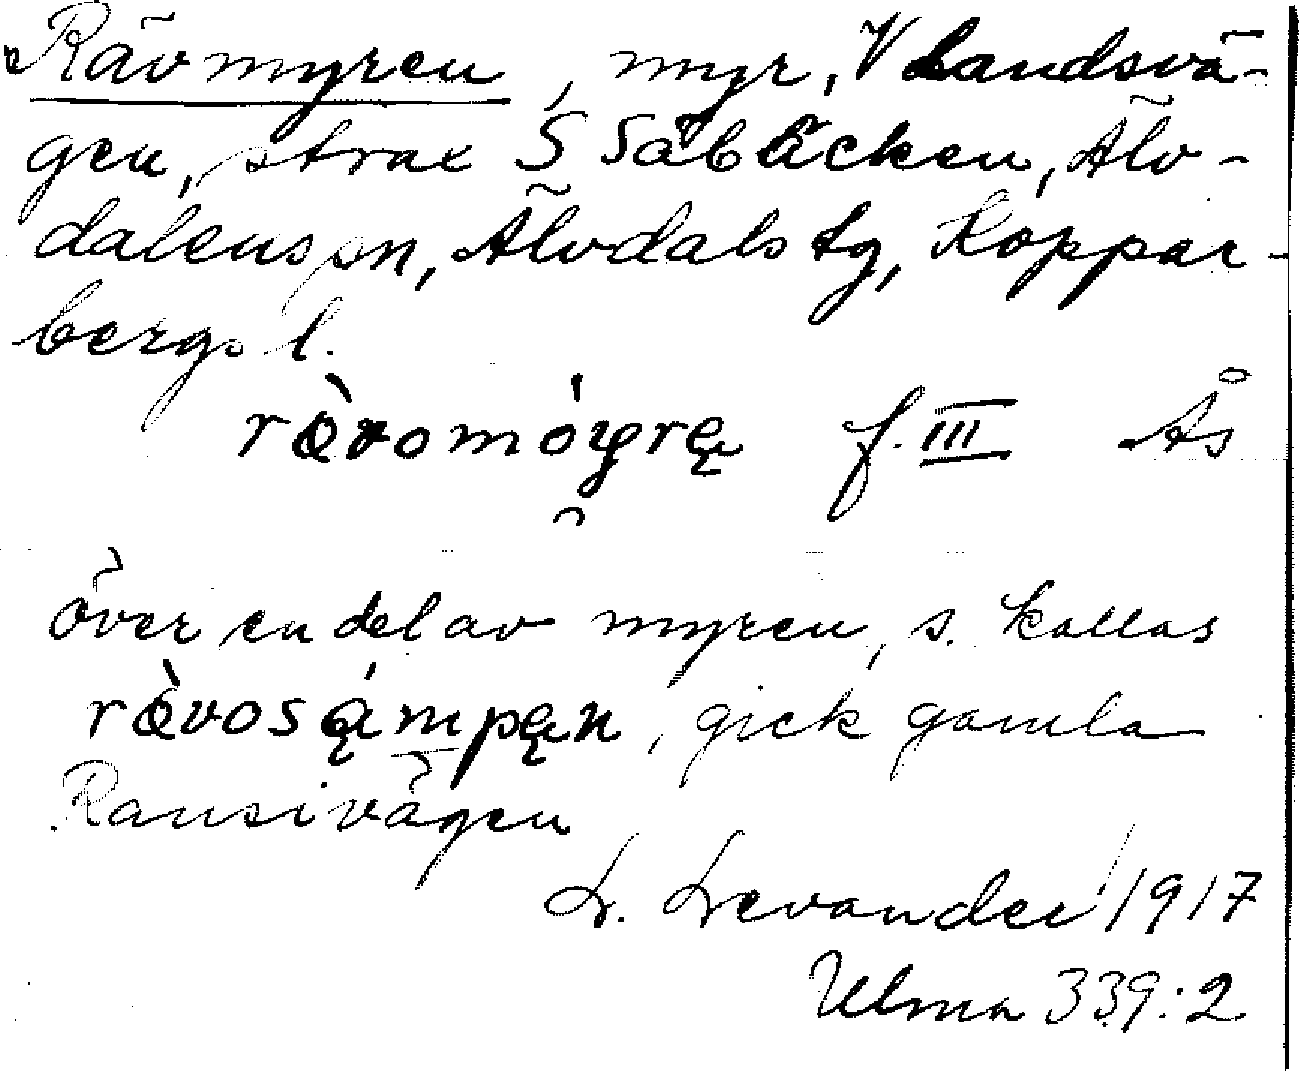 Rävmyren, myr, V landsvä-
gen, strax S Säbäcken, Älv-
dalens sn, Älvdals tg, Koppar-
bergs l.
f. III Ås
över en del av myren, s. kallas
gick gamla
Ransivägen
L. Levander 1917
Ulma 339:2